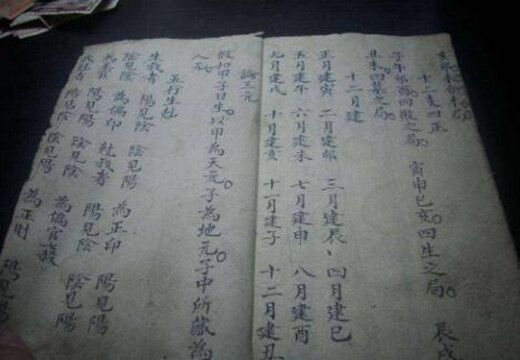 十二支四正
子午卯酉。四敗之局。寅申巳亥。四生之局。辰戌
丑未。四墓之局。
十二月建
正月建寅 二月建卯 三月建辰 四月建巳
五月建午 六月建未 七月建申 八月建酉
九月建戌 十月建亥 十一月建子 十二月建丑
論三元
假如甲子日生。以甲為天元。子為地元。子中所藏為
人元。
五行生尅
生我者 陽見陰 陰見陽 為正印 陽見陽
陰見陰 為偏印 尅我者 陽見陰 陰見陽
為正官 陽見陽 陰見陰 為偏官
陽見陰 陰見陽 為正財 陽見陽